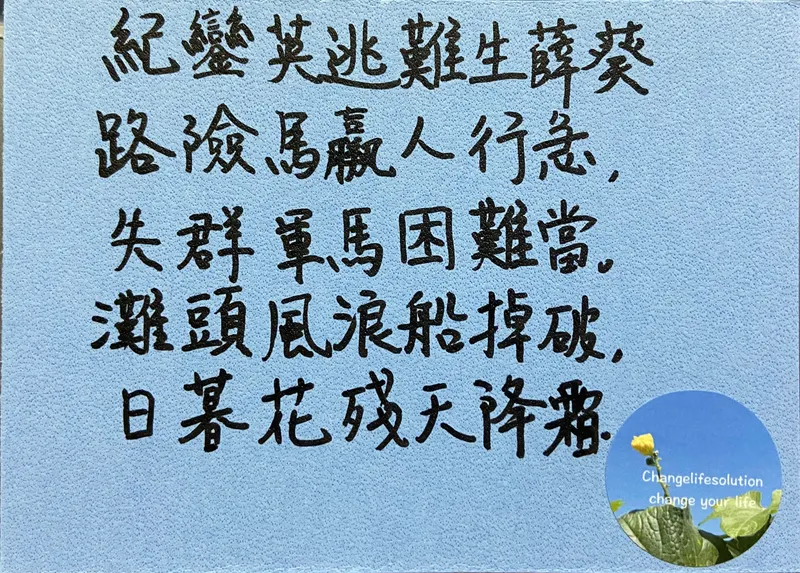 紀鑾英逃難生薛葵
路險馬羸人行急，
失群單馬困難當。
灘頭風浪船掉破，
日暮花殘天降霜.
Changelifesolution
change your life